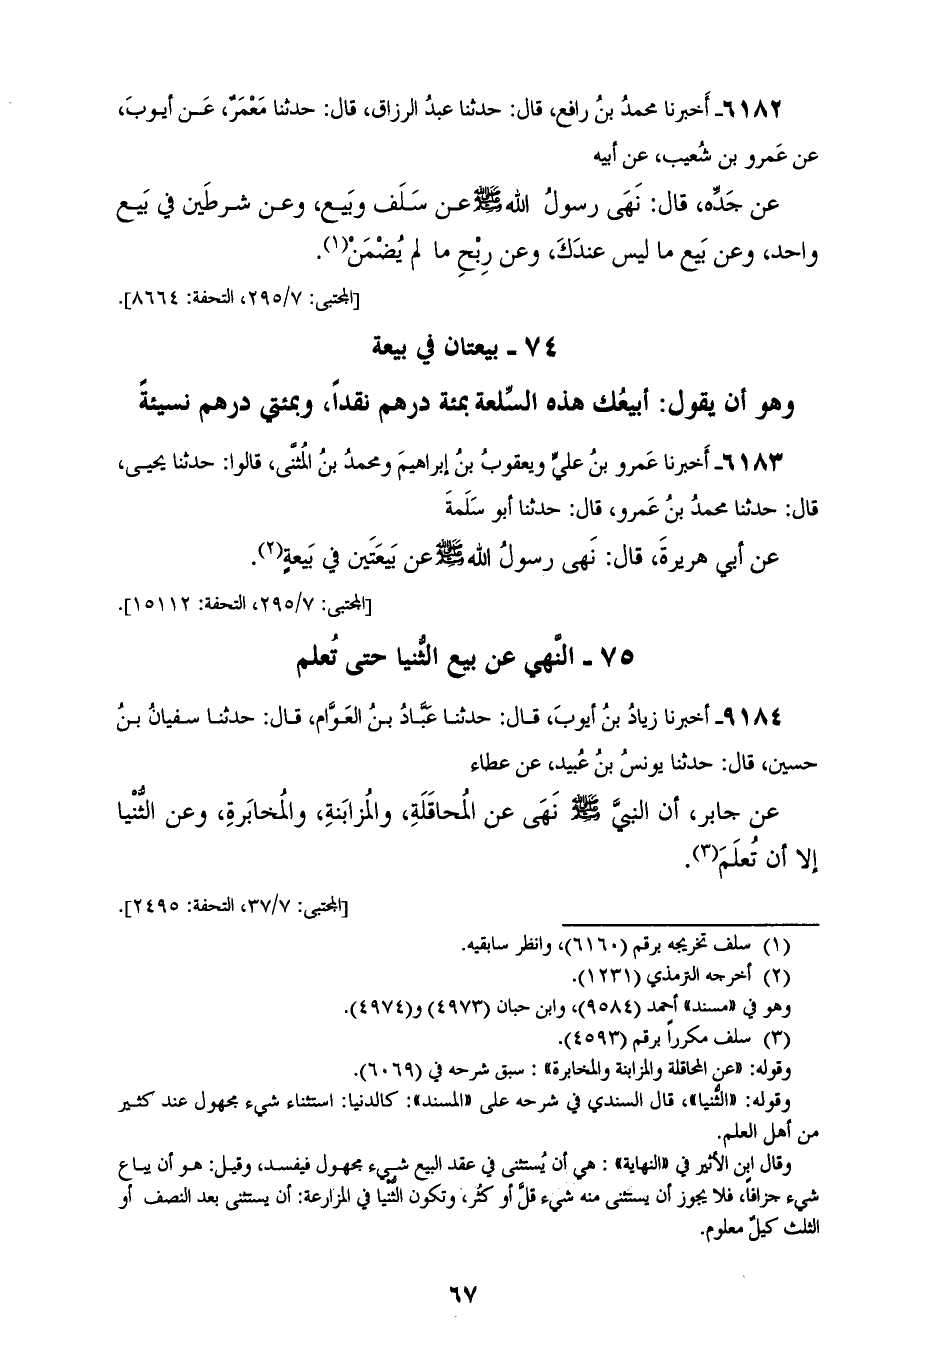 ٦١٨٢ـ أَخبرنا محمدُ بنُ رافع، قال: حدثنا عبدُ الرزاق، قال: حدثنا مَعْمَرٌ، عَـن أيـوبَ،
عن عَمرو بن شُعيب، عن أبيه
عن جَدِّه، قال: نَهَى رسولُ الله ﷺ عـن سَـلَف وبَيـع، وعـن شـرطَين في بَيـع
واحد، وعن بَيع ما ليس عندَكَ، وعن رِبْحِ ما لم يُضْمَنْ(١).
[المجتبى: ٢٩٥/٧، التحفة: ٨٦٦٤].
٧٤ ـ بيعتان في بيعة
وهو أن يقول: أبيعُك هذه السِّلعة بمئة درهم نقداً، وبمئتي درهم نسيئةً
٦١٨٣ـ أَخبرنا عَمرو بنُ عليٍّ ويعقوبُ بنُ إبراهيمَ ومحمدُ بنُ المُثنَّى، قالوا: حدثنا يحيـى،
قال: حدثنا محمدُ بنُ عَمرو، قال: حدثنا أبو سَلَمةَ
عن أبي هريرةَ، قال: نَهى رسولُ الله ﷺ عن بَيعَتَين في بَيعةٍ(٢).
[المجتبى: ٢٩٥/٧، التحفة: ١٥١١٢].
٧٥ ـ النَّهي عن بيع الثُّنيا حتى تُعلم
٩١٨٤ـ أخبرنا زيادُ بنُ أيوبَ، قـال: حدثنـا عَبَّـادُ بـنُ العَـوَّام، قـال: حدثنـا سـفيانُ بـنُ
حسين، قال: حدثنا يونسُ بنُ عُبيد، عن عطاء
عن جابر، أن النبيَّ ﷺ نَهَى عن المُحاقَلَةِ، والمُزابَنةِ، والمُخابَرةِ، وعن الثُّنْيا
إلا أن تُعلَمَ(٣).
[المجتبى: ٣٧/٧، التحفة: ٢٤٩٥].
(١) سلف تخريجه برقم (٦١٦٠)، وانظر سابقيه.
(٢) أخرجه الترمذي (١٢٣١).
وهو في «مسند» أحمد (٩٥٨٤)، وابن حبان (٤٩٧٣) و(٤٩٧٤).
(٣) سلف مكرراً برقم (٤٥٩٣).
وقوله: «عن المحاقلة والمزابنة والمخابرة» : سبق شرحه في (٦٠٦٩).
وقوله: «الثُّنيا»، قال السندي في شرحه على «المسند»: كالدنيا: استثناء شيء مجهول عند كثـير
من أهل العلم.
وقال ابن الأثير في «النهاية» : هي أن يُستثنى في عقد البيع شيء مجهول فيفسد، وقيل: هـو أن يبـاع
شيء جزافاً، فلا يجوز أن يستثنى منه شيء قلَّ أو كثُر، وتكون الثُّنيا في المزارعة: أن يستثنى بعد النصف أو
الثلث كيلٌ معلوم.
٦٧